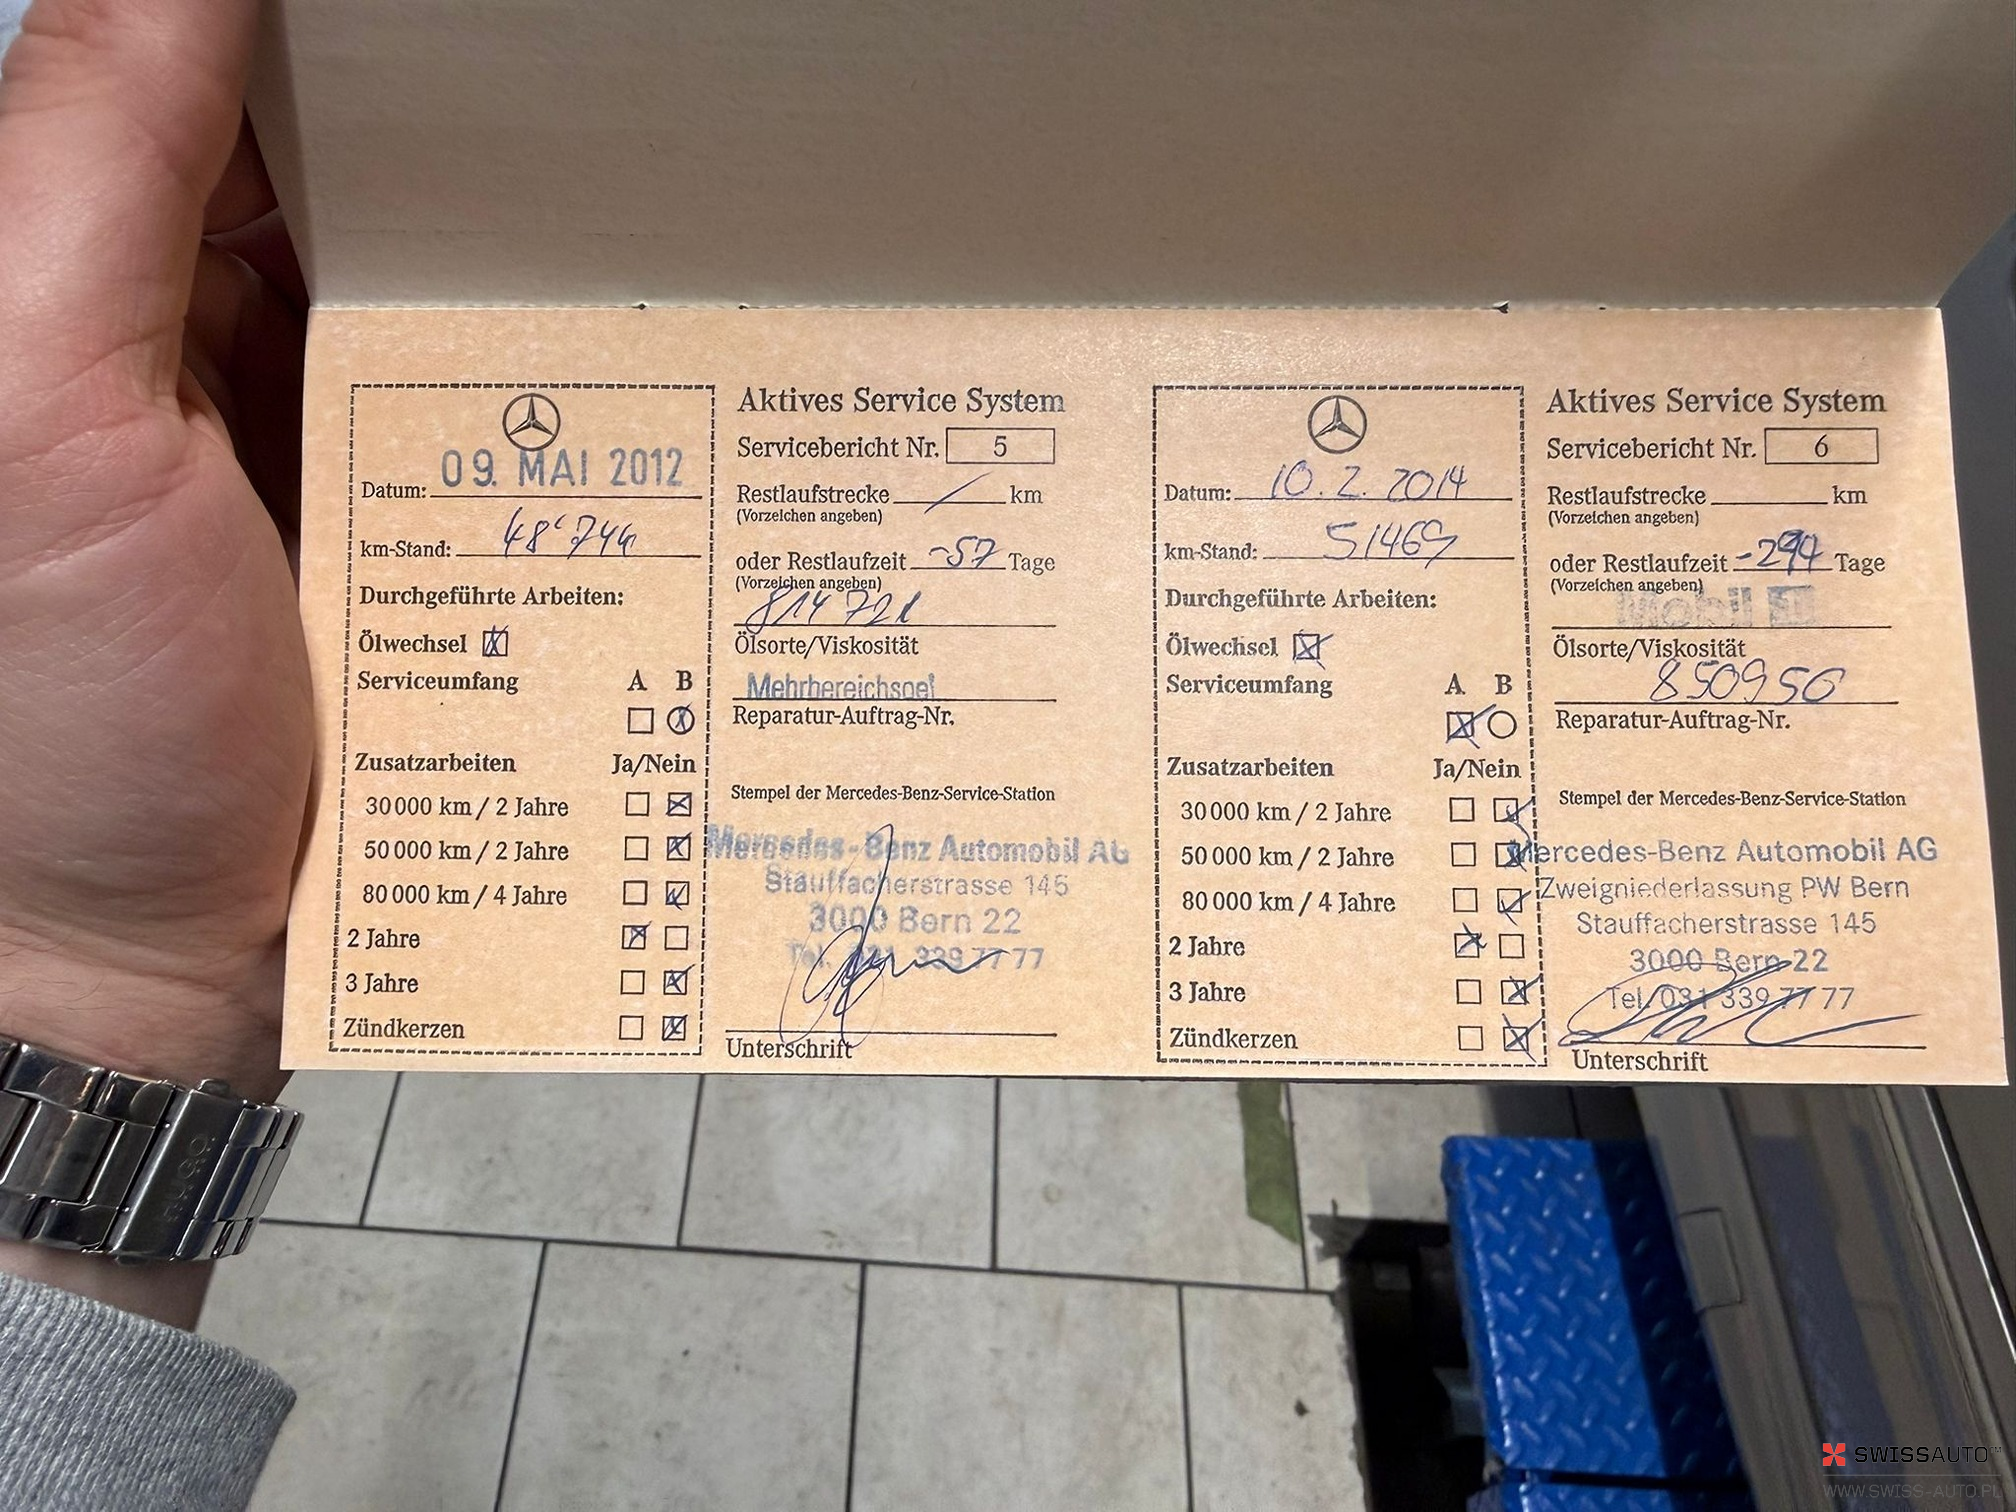 Aktives Service System
Servicebericht Nr. 5
Datum: 09. MAI 2012
Restlaufstrecke / km
(Vorzeichen angeben)
km-Stand: 48'744
oder Restlaufzeit -57 Tage
(Vorzeichen angeben)
Durchgeführte Arbeiten:
814721
Ölwechsel
Ölsorte/Viskosität
Serviceumfang A B
Mehrbereichsoel
Reparatur-Auftrag-Nr.
Zusatzarbeiten Ja/Nein
30 000 km / 2 Jahre
Stempel der Mercedes-Benz-Service-Station
50 000 km / 2 Jahre
Mercedes-Benz Automobil AG
80 000 km / 4 Jahre
Stauffacherstrasse 145
3000 Bern 22
2 Jahre
Tel. 031 339 77 77
3 Jahre
Zündkerzen
Unterschrift
Aktives Service System
Servicebericht Nr. 6
Datum: 10. 2. 2014
Restlaufstrecke km
(Vorzeichen angeben)
km-Stand: 51469
oder Restlaufzeit -294 Tage
(Vorzeichen angeben)
Durchgeführte Arbeiten:
Mobil 1
Ölwechsel
Ölsorte/Viskosität
Serviceumfang A B
850956
Reparatur-Auftrag-Nr.
Zusatzarbeiten Ja/Nein
30 000 km / 2 Jahre
Stempel der Mercedes-Benz-Service-Station
50 000 km / 2 Jahre
Mercedes-Benz Automobil AG
80 000 km / 4 Jahre
Zweigniederlassung PW Bern
Stauffacherstrasse 145
2 Jahre
3000 Bern 22
3 Jahre
Tel. 031 339 77 77
Zündkerzen
Unterschrift
SWISSAUTO
WWW.SWISS-AUTO.PL